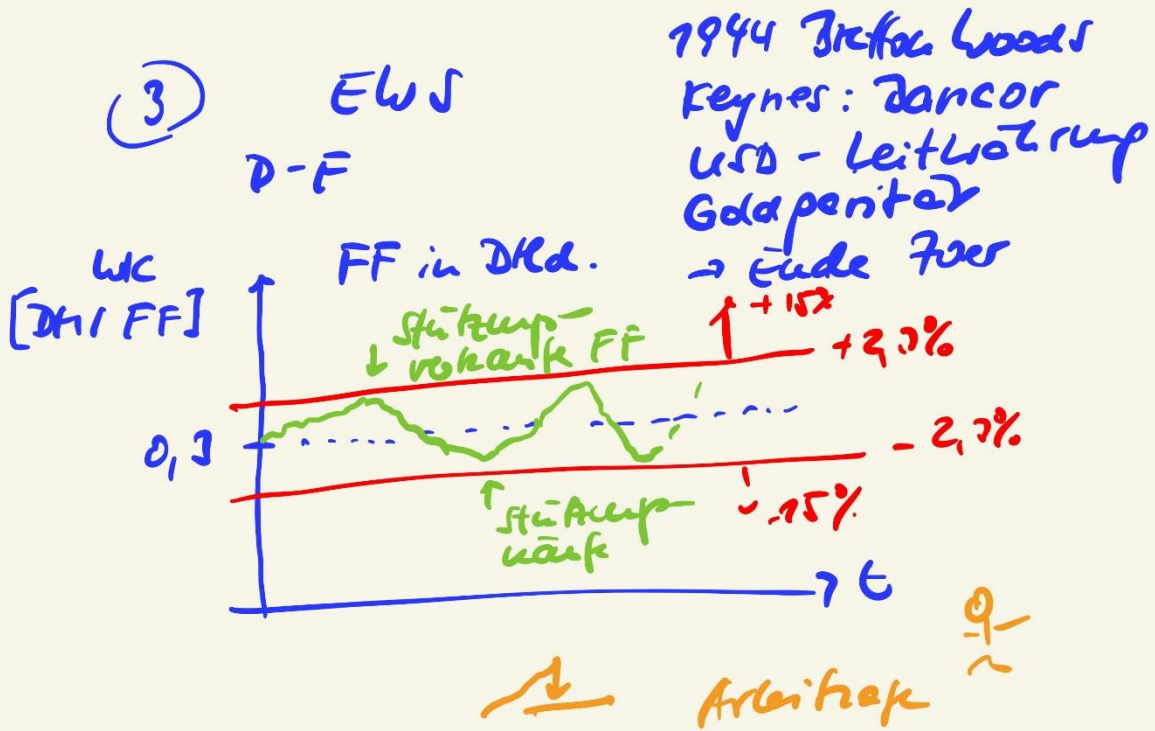 1944 Bretton Woods
③ EWS
Keynes: Bancor
USD - Leitwährung
D-F
Goldparität
→ Ende 70er
WK
[DM/FF]
FF in Dtld.
+15%
Stützungs-
verkäufe FF
+2,5%
0,3
-2,5%
-15%
Stützungs-
käufe
t
Arbitrage